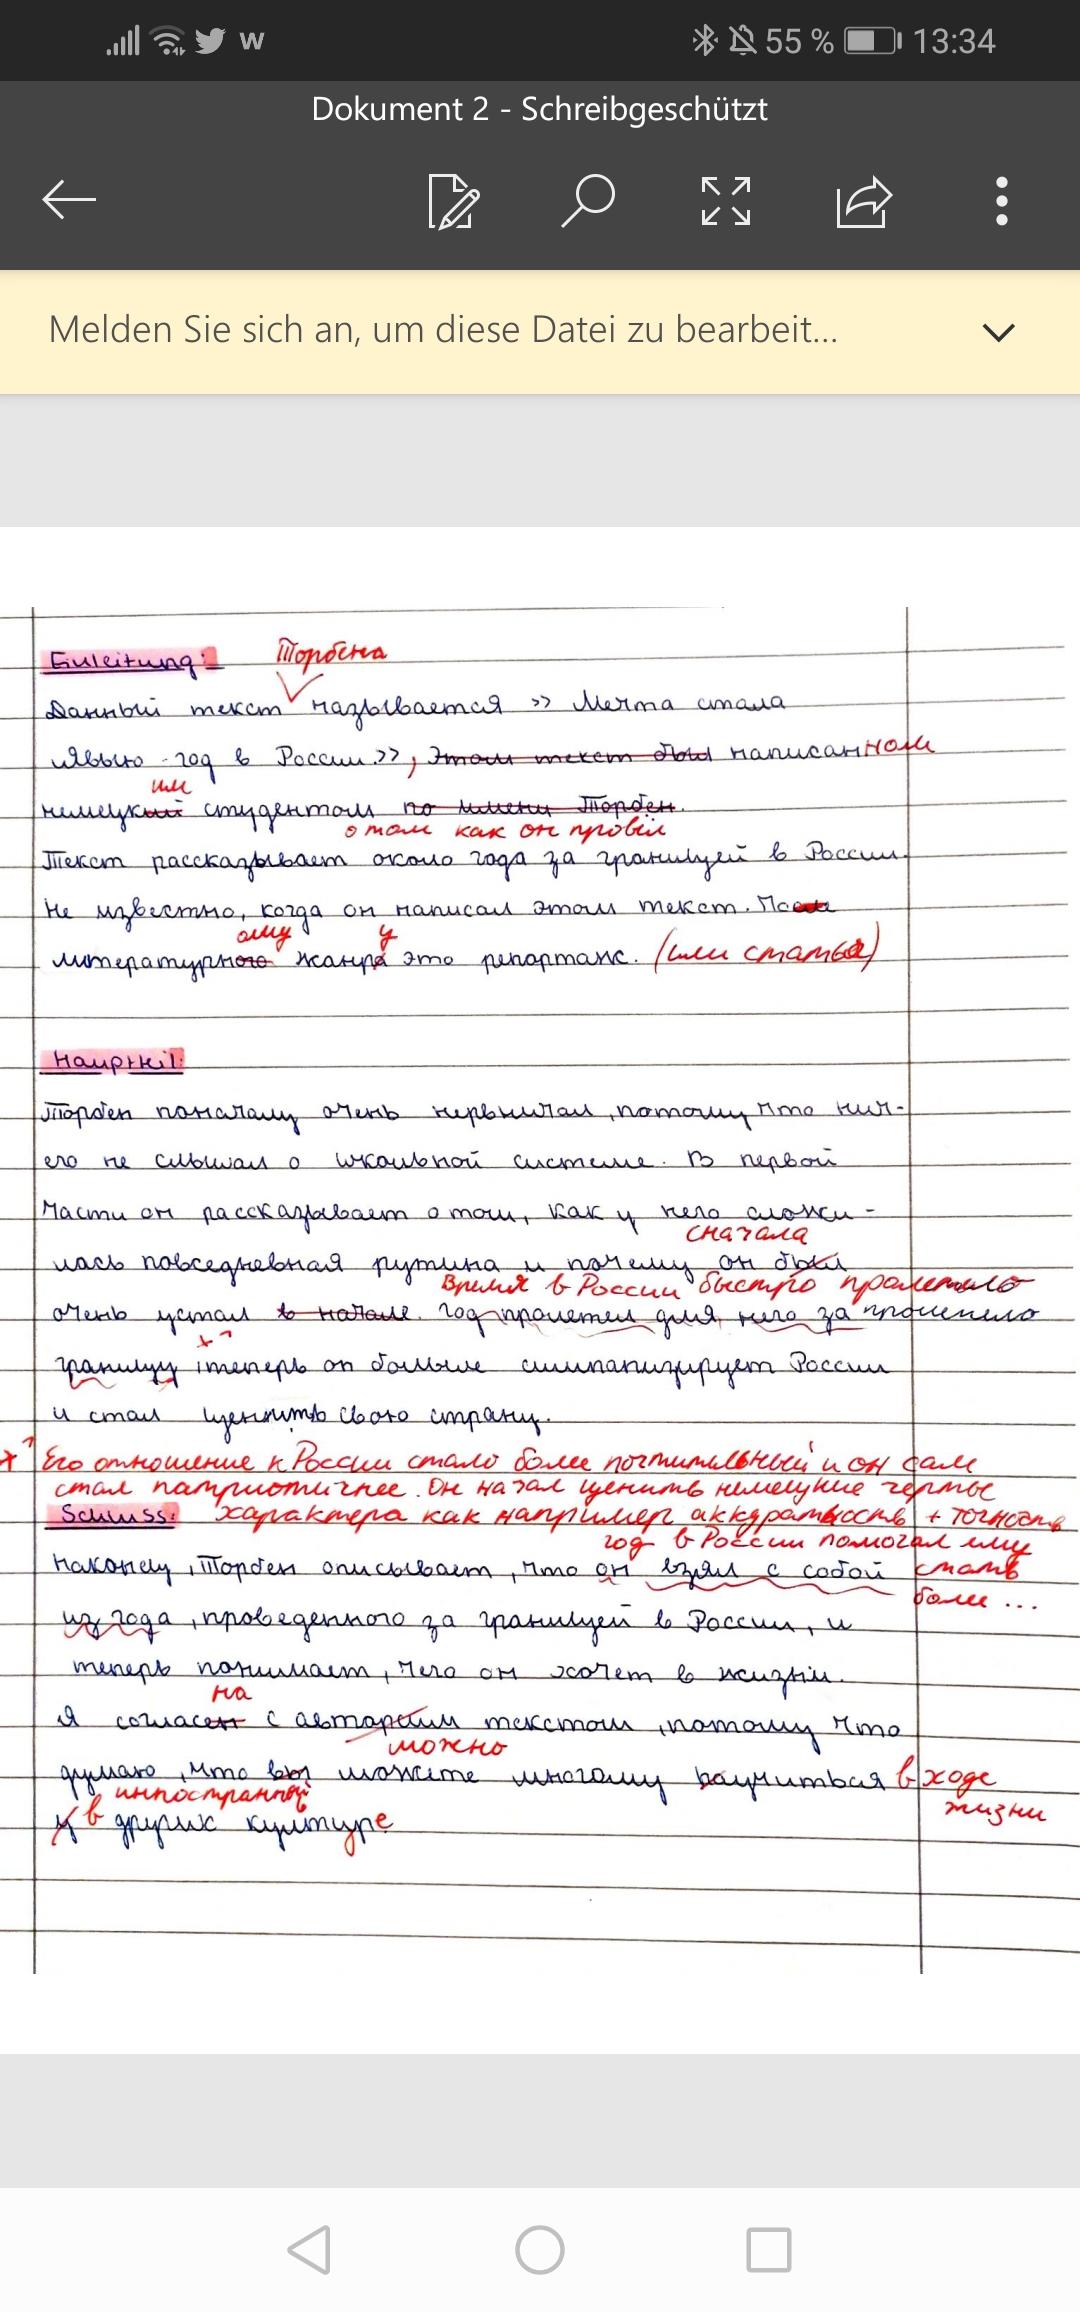 W 55 % 13:34
Dokument 2 - Schreibgeschützt
Melden Sie sich an, um diese Datei zu bearbeit...
Einleitung:
Торбена
Данный текст называется >> Мечта стала
явью - год в России >>, Этот текст был написанном
им
немецкий студентом по имени Торбен.
о том как он провёл
Текст рассказывает около года за границей в России.
Не известно, когда он написал этот текст. По
ому у
литературного жанра это репортаж. (или статья)
Hauptteil:
Торбен поначалу очень нервничал, потому что нич-
его не слышал о школьной системе. В первой
части он рассказывает о том, как у него сложи-
сначала
лась повседневная рутина и почему он был
Время в России быстро пролетело
очень устал в начале. Год пролетел для него за
границу, теперь он больше симпатизирует России
и стал ценить свою страну.
Его отношение к России стало более почтительный и он сам
стал патриотичнее. Он начал ценить немецкие черты
Schluss: характера как например аккуратность + точность
год в России помогал ему
Наконец, Торбен описывает, что он взял с собой стать
более ...
из года, проведенного за границей в России, и
теперь понимает, чего он хочет в жизни.
на
Я согласен с автором текстом, потому что
можно
думаю, что вы можете многому научиться в ходе
иностранной жизни
у в других културе